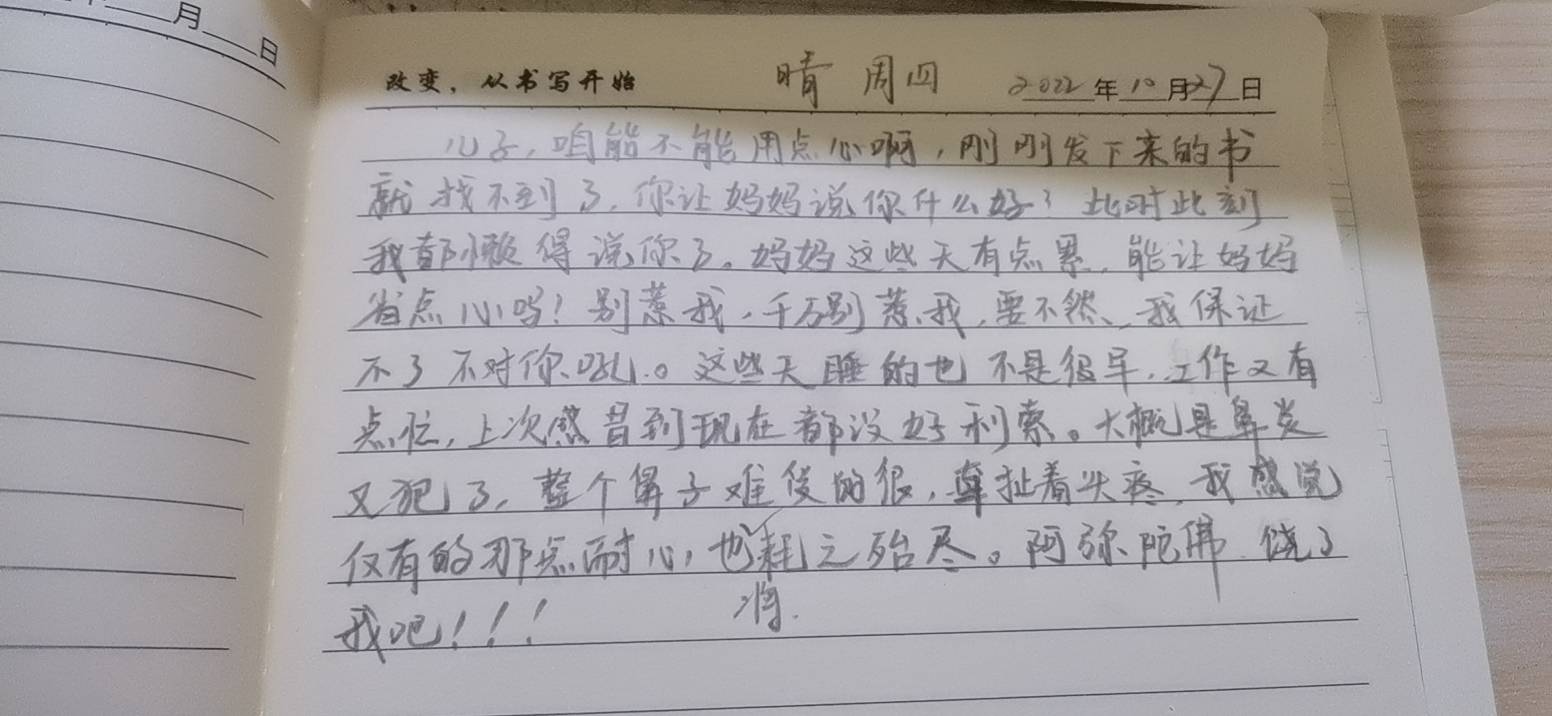 月 日
改变，从书写开始 晴 周四 2022年10月27日
儿子，咱能不能用点心啊，刚刚发下来的书
就找不到了，你让妈妈说你什么好？此时此刻
我都懒得说你了。妈妈这些天有点累，能让妈妈
省点心吗！别惹我，千万别惹我，要不然，我保证
不了不对你吼。这些天睡的也不是很早，工作又有
点忙，上次感冒到现在都没好利索。大概是鼻炎
又犯了，整个鼻子难受的很，牵扯着头疼，我感觉
仅有的那点耐心，也将耗之殆尽。阿弥陀佛 饶了
我吧！！！